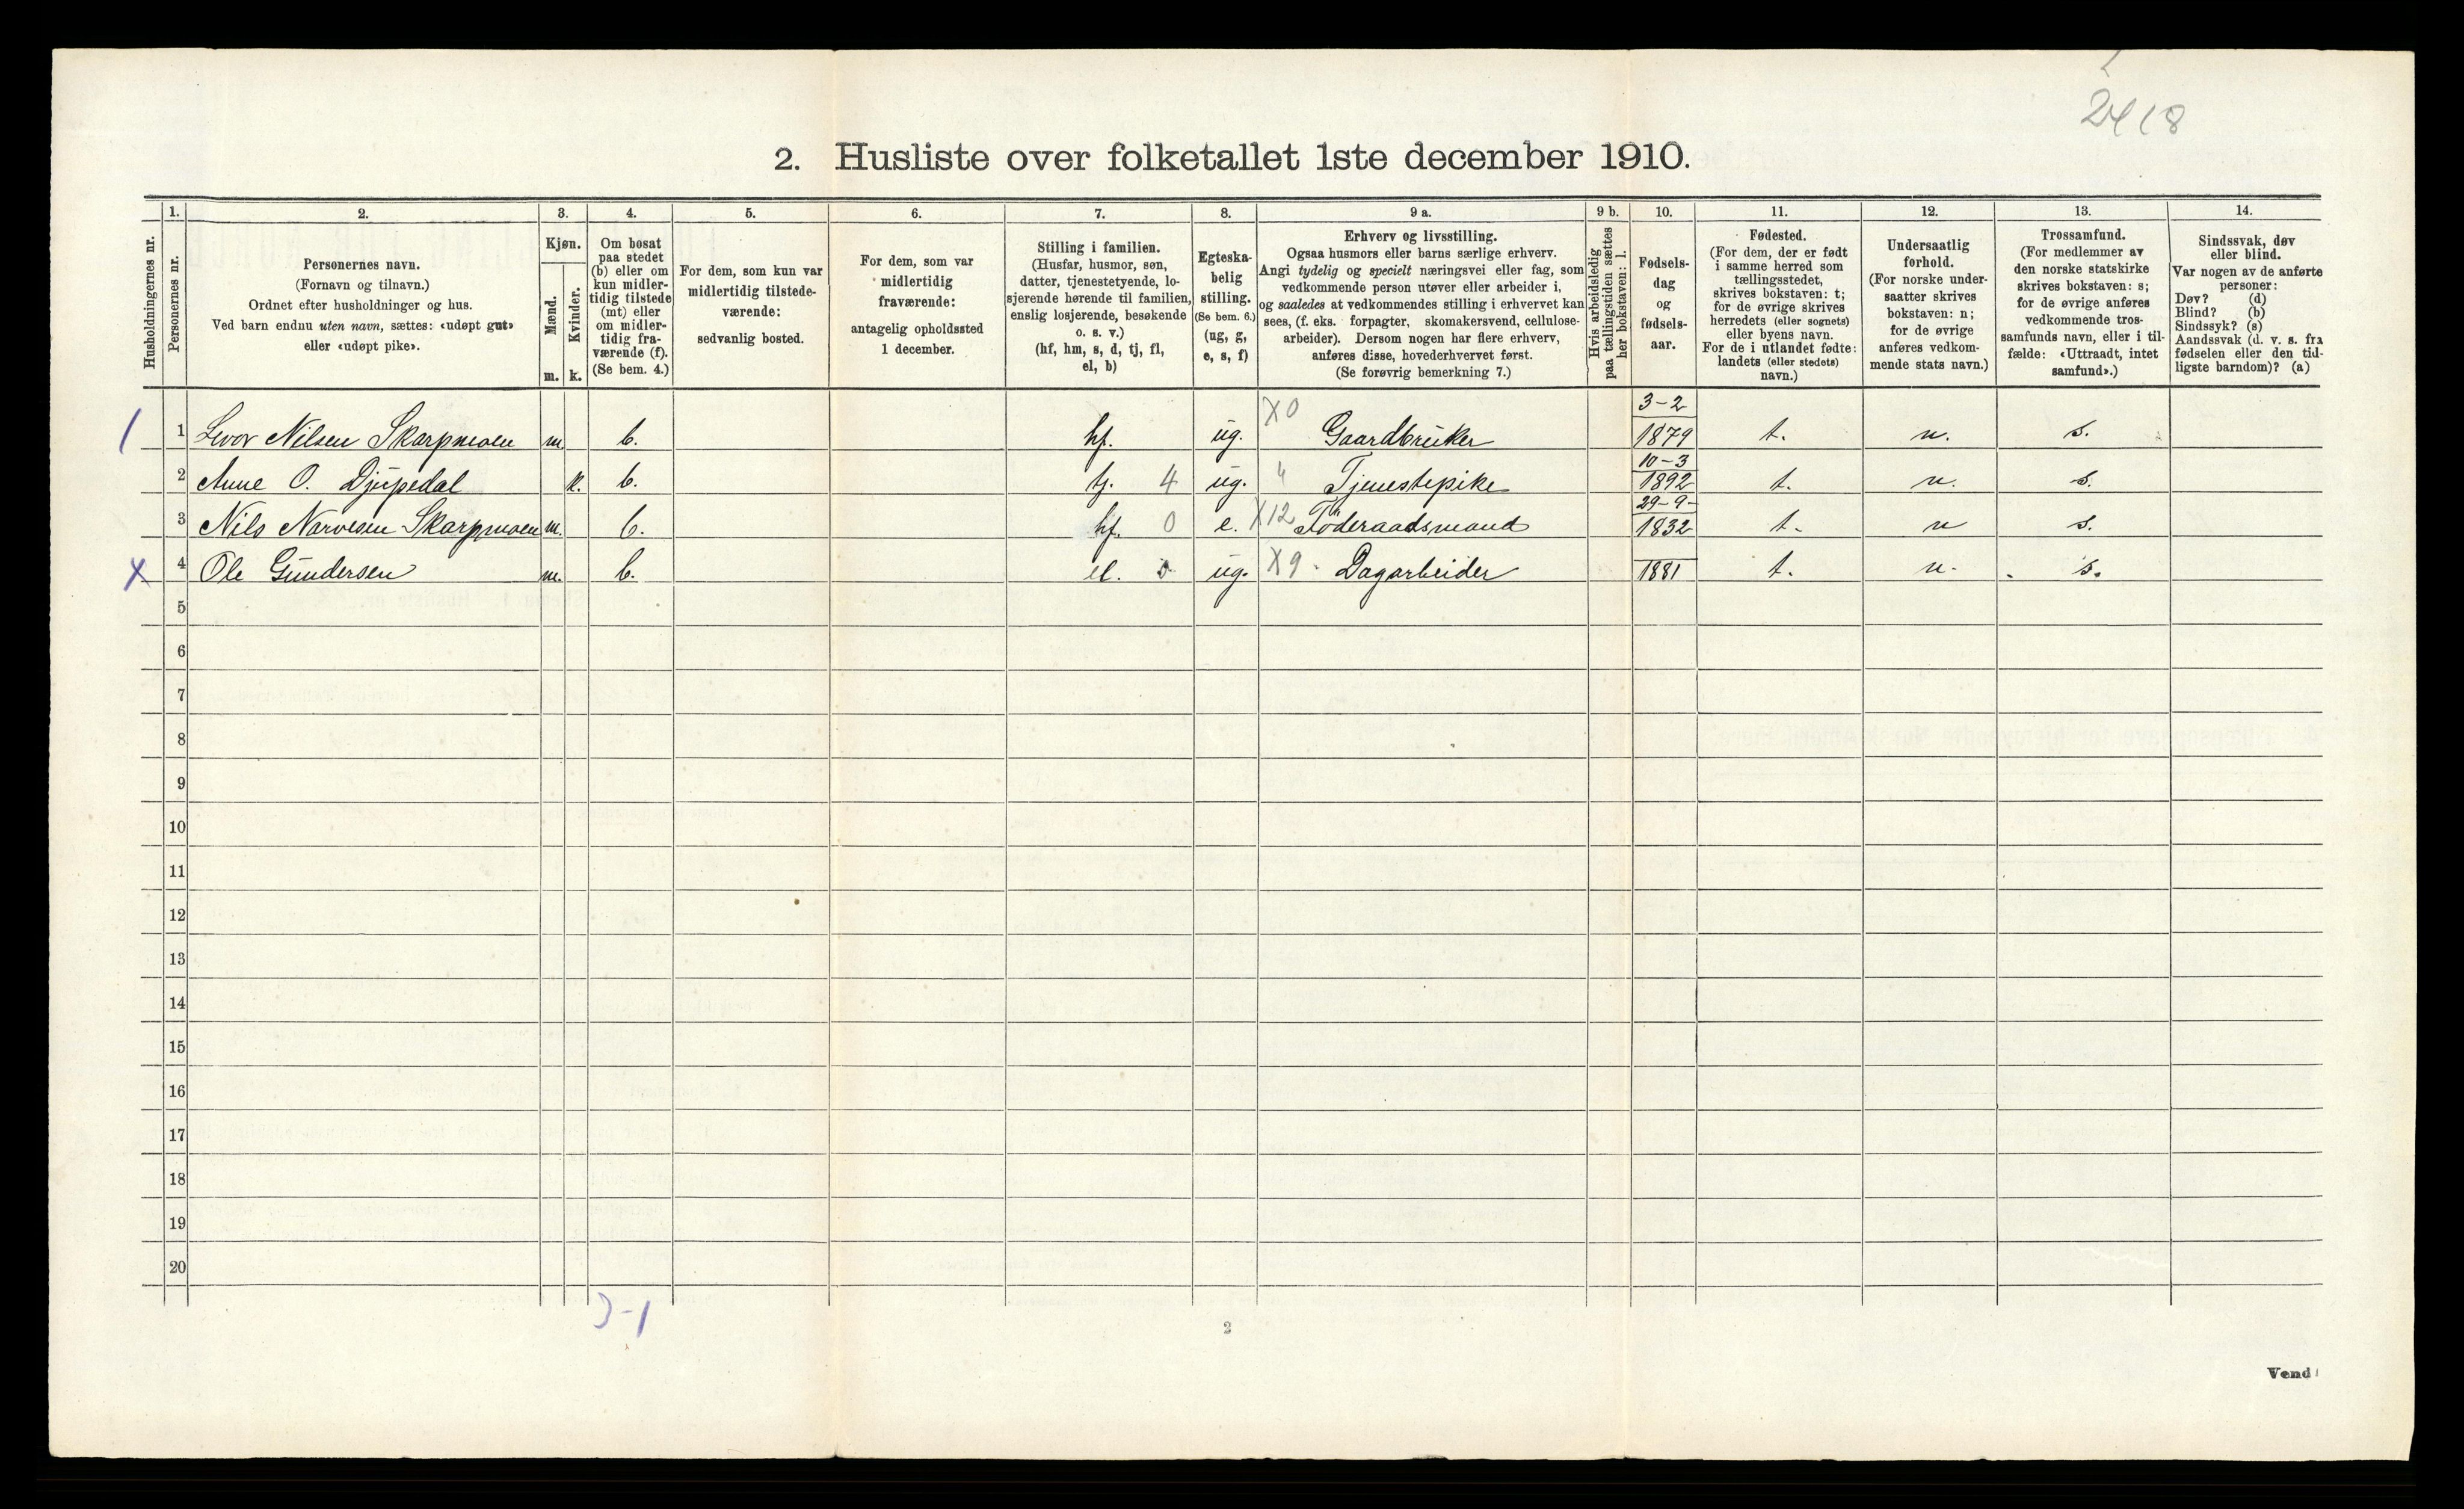 2418
2. Husliste over folketallet 1ste december 1910.
Husholdningernes nr.
1.
Personernes nr.
2.
Personernes navn.
(Fornavn og tilnavn.)
Ordnet efter husholdninger og hus.
Ved barn endnu uten navn, sættes: «udøpt gut»
eller «udøpt pike».
3.
Kjøn.
Mænd.
Kvinder.
m. k.
4.
Om bosat
paa stedet
(b) eller om
kun midler-
tidig tilstede
(mt) eller
om midler-
tidig fra-
værende (f).
(Se bem. 4.)
5.
For dem, som kun var
midlertidig tilstede-
værende:
sedvanlig bosted.
6.
For dem, som var
midlertidig
fraværende:
antagelig opholdssted
1 december.
7.
Stilling i familien.
(Husfar, husmor, søn,
datter, tjenestetyende, lo-
sjerende hørende til familien,
enslig losjerende, besøkende
o. s. v.)
(hf, hm, s, d, tj, fl,
el, b)
8.
Egteska-
belig
stilling.
(Se bem. 6.)
(ug, g,
e, s, f)
9 a.
Erhverv og livsstilling.
Ogsaa husmors eller barns særlige erhverv.
Angi tydelig og specielt næringsvei eller fag, som
vedkommende person utøver eller arbeider i,
og saaledes at vedkommendes stilling i erhvervet kan
sees, (f. eks. forpagter, skomakersvend, cellulose-
arbeider). Dersom nogen har flere erhverv,
anføres disse, hovederhvervet først.
(Se forøvrig bemerkning 7.)
9 b.
Hvis arbeidsledig
paa tællingstiden sættes
her bokstaven: l.
10.
Fødsels-
dag
og
fødsels-
aar.
11.
Fødested.
(For dem, der er født
i samme herred som
tællingsstedet,
skrives bokstaven: t;
for de øvrige skrives
herredets (eller sognets)
eller byens navn.
For de i utlandet fødte:
landets (eller stedets)
navn.)
12.
Undersaatlig
forhold.
(For norske under-
saatter skrives
bokstaven: n;
for de øvrige
anføres vedkom-
mende stats navn.)
13.
Trossamfund.
(For medlemmer av
den norske statskirke
skrives bokstaven: s;
for de øvrige anføres
vedkommende tros-
samfunds navn, eller i til-
fælde: «Uttraadt, intet
samfund».)
14.
Sindssvak, døv
eller blind.
Var nogen av de anførte
personer:
Døv? (d)
Blind? (b)
Sindssyk? (s)
Aandssvak (d. v. s. fra
fødselen eller den tid-
ligste barndom)? (a)
1 1 Levor Nilsen Skarpmoen m. b. hf. ug. X0 Gaardbruker 3-2 1879 t. n. s.
2 Anne O. Djupedal k. b. tj. 4 ug. 4 Tjenestepike 10-3 1892 t. n. s.
3 Nils Narvesen Skarpmoen m. b. hf. 0 e. X12 Föderaadsmand 29-9- 1832 t. n s.
X 4 Ole Gundersen m. b. el. 0 ug. X9 Dagarbeider 1881 t. n. s.
5
6
7
8
9
10
11
12
13
14
15
16
17
18
19
20
3-1
2
Vend